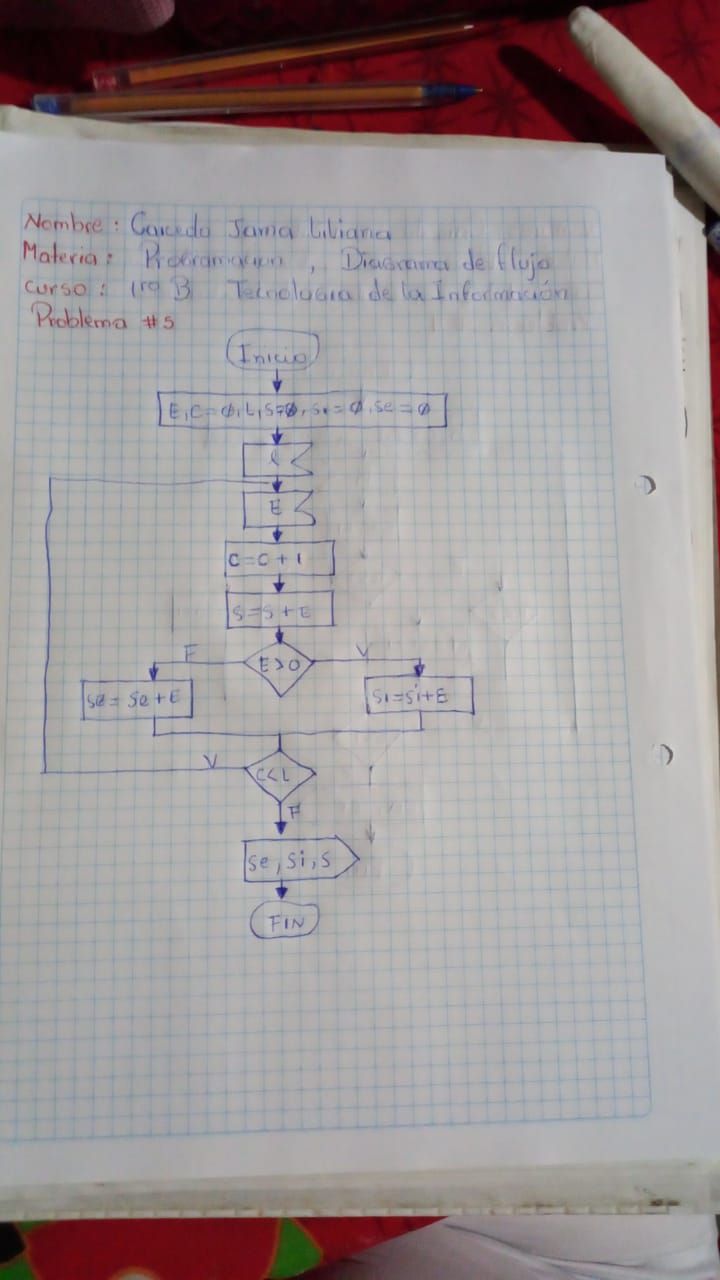 Nombre: Jama Liliana
Materia: Programacion, Diagrama de flujo
Curso: 1ro B Tecnología de la Información
Problema #5
Inicio
E, C=0, L, S=0, Si=0, Se=0
E
C=C+1
S=S+E
F E>0 V
Se=Se+E Si=Si+E
V C<L
F
Se, Si, S
FIN